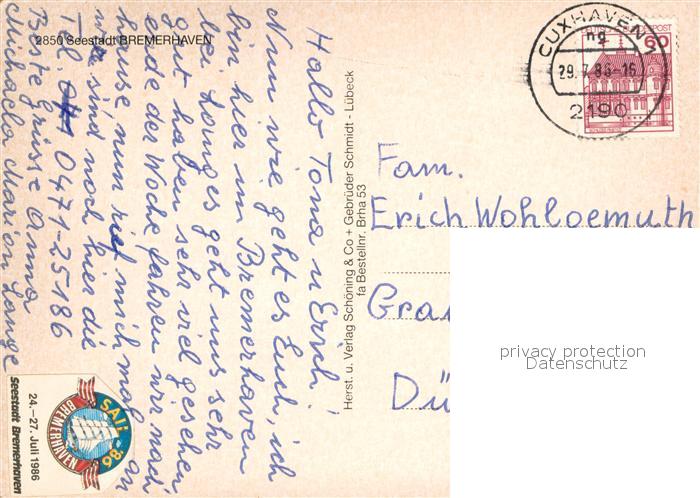 2850 Seestadt BREMERHAVEN
Hallo Toma u Erich!
Nun wie geht es Euch, ich
bin hier im Bremerhaven
bei Langes geht uns sehr
gut haben sehr viel gesehen
Ende der Woche fahren wir nach
hause nun rief mich mal an
wir sind noch hier die
Tel 0471-25186
Beste grüsse Anna
Michaela Marion Lange
SAIL '86
BREMERHAVEN
24.–27. Juli 1986
Seestadt Bremerhaven
Herst. u. Verlag Schöning & Co + Gebrüder Schmidt - Lübeck
fa Bestellnr. Brha 53
CUXHAVEN 1
ng
29.7.86-16
2190
DEUTSCHE BUNDESPOST
60
Fam.
Erich Wohlgemuth
Gra
Dü
privacy protection
Datenschutz